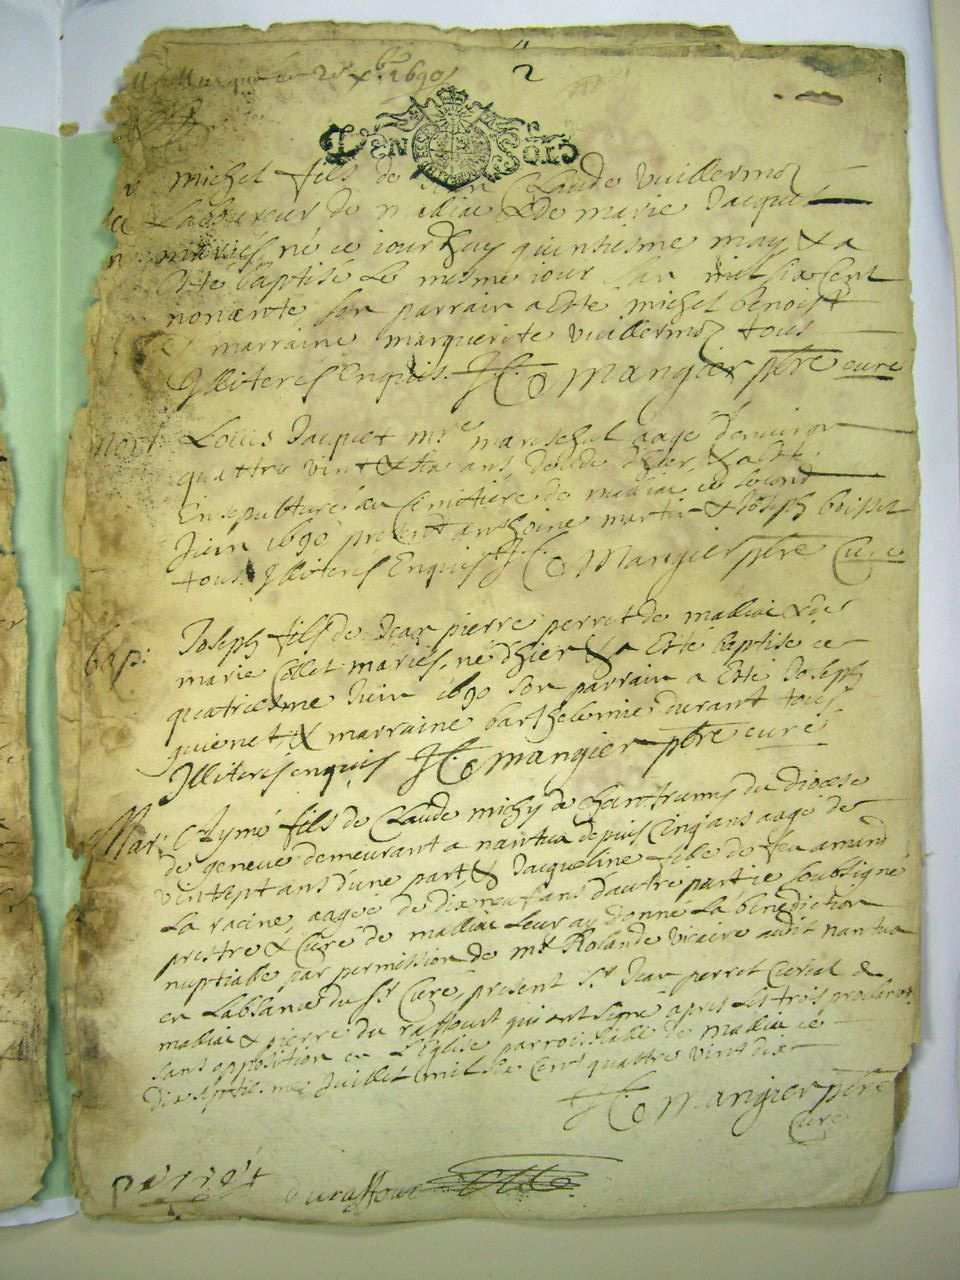 2
DEN SOLS
michel fils de Claude vuillermoz
Laboureur de malliac & de marie Jacquet
mariés, né ce iourdhuy quinsiesme may, & a
esté baptisé Le mesme iour Lan mil six cent
nonante son parrain a esté michel benoist
& marraine marguerite vuillermoz tous
Illiterés Enquis. Mangier pbre curé
mort Louis Jacquet mre mareschal aagé denuiron
quattre vint & six ans, & a esté
Ensepulturé au Cemetiere de malliac ce second
Juin 1690 present anthoine martin & Joseph
tous Illiterés Enquis Mangier pbre Curé
bap: Joseph fils de Jean pierre perret de malliac & de
marie Collet mariés, né dhier & a Esté baptisé ce
quatriesme Juin 1690 son parrain a Esté Joseph
guienet & marraine barthelemie durant tous
Illiterés enquis Mangier pbre curé
Mar: Aymé fils de Claude michy de du diocese
de geneue demeurant a nantua depuis Cinq ans aagé de
vintsept ans d'une part & Jacqueline fille de feu amand
La racine, aagée de dixneuf ans d'autre part ie soubsigné
prestre & Curé de malliac Leur ay donné La benediction
nuptialle par permission de mr Rolande vicaire audit nantua
en Labsance du sr Curé, present sr Jean perret Curial de
malliac & pierre du raffourt qui ont signé apres Les trois proclamat.
sans opposition en L'Eglise parroissialle de malliac ce
dix septiesme Juillet mil six Cent quattre vint dix
Mangier pbre
Curé
perret duraffour